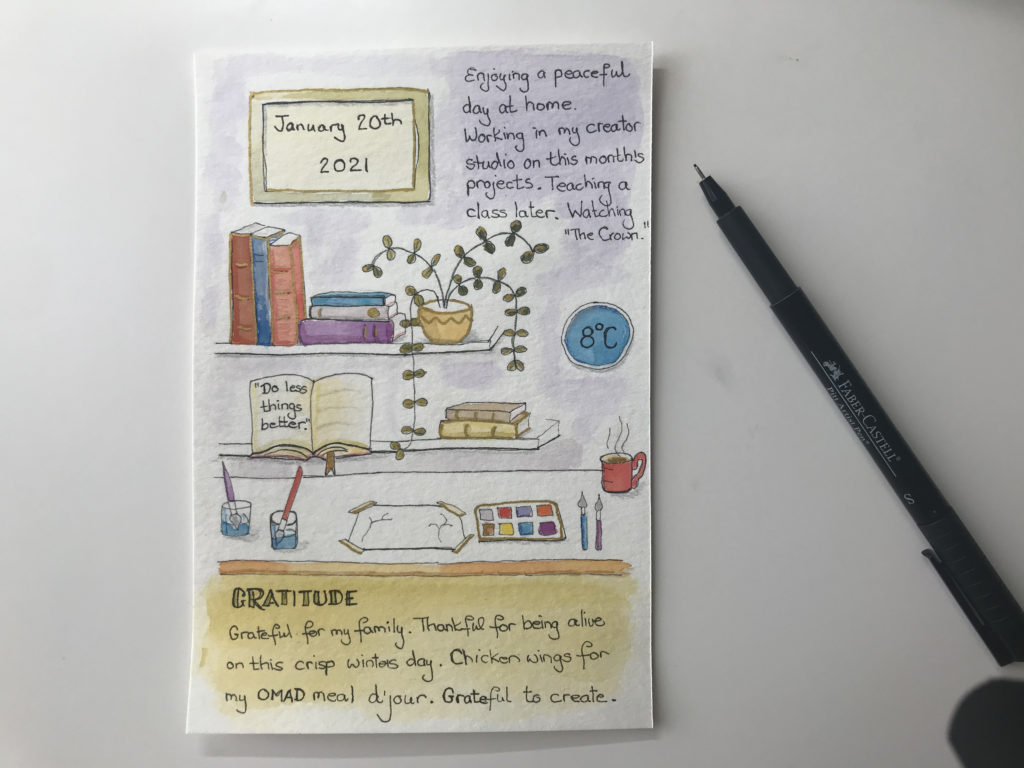 January 20th
2021
Enjoying a peaceful
day at home.
Working in my creator
studio on this month's
projects. Teaching a
class later. Watching
"The Crown."
8°C
"Do less
things
better."
GRATITUDE
Grateful for my family. Thankful for being alive
on this crisp winters day. Chicken wings for
my OMAD meal d'jour. Grateful to create.
FABER-CASTELL
Pitt Artist Pen
S